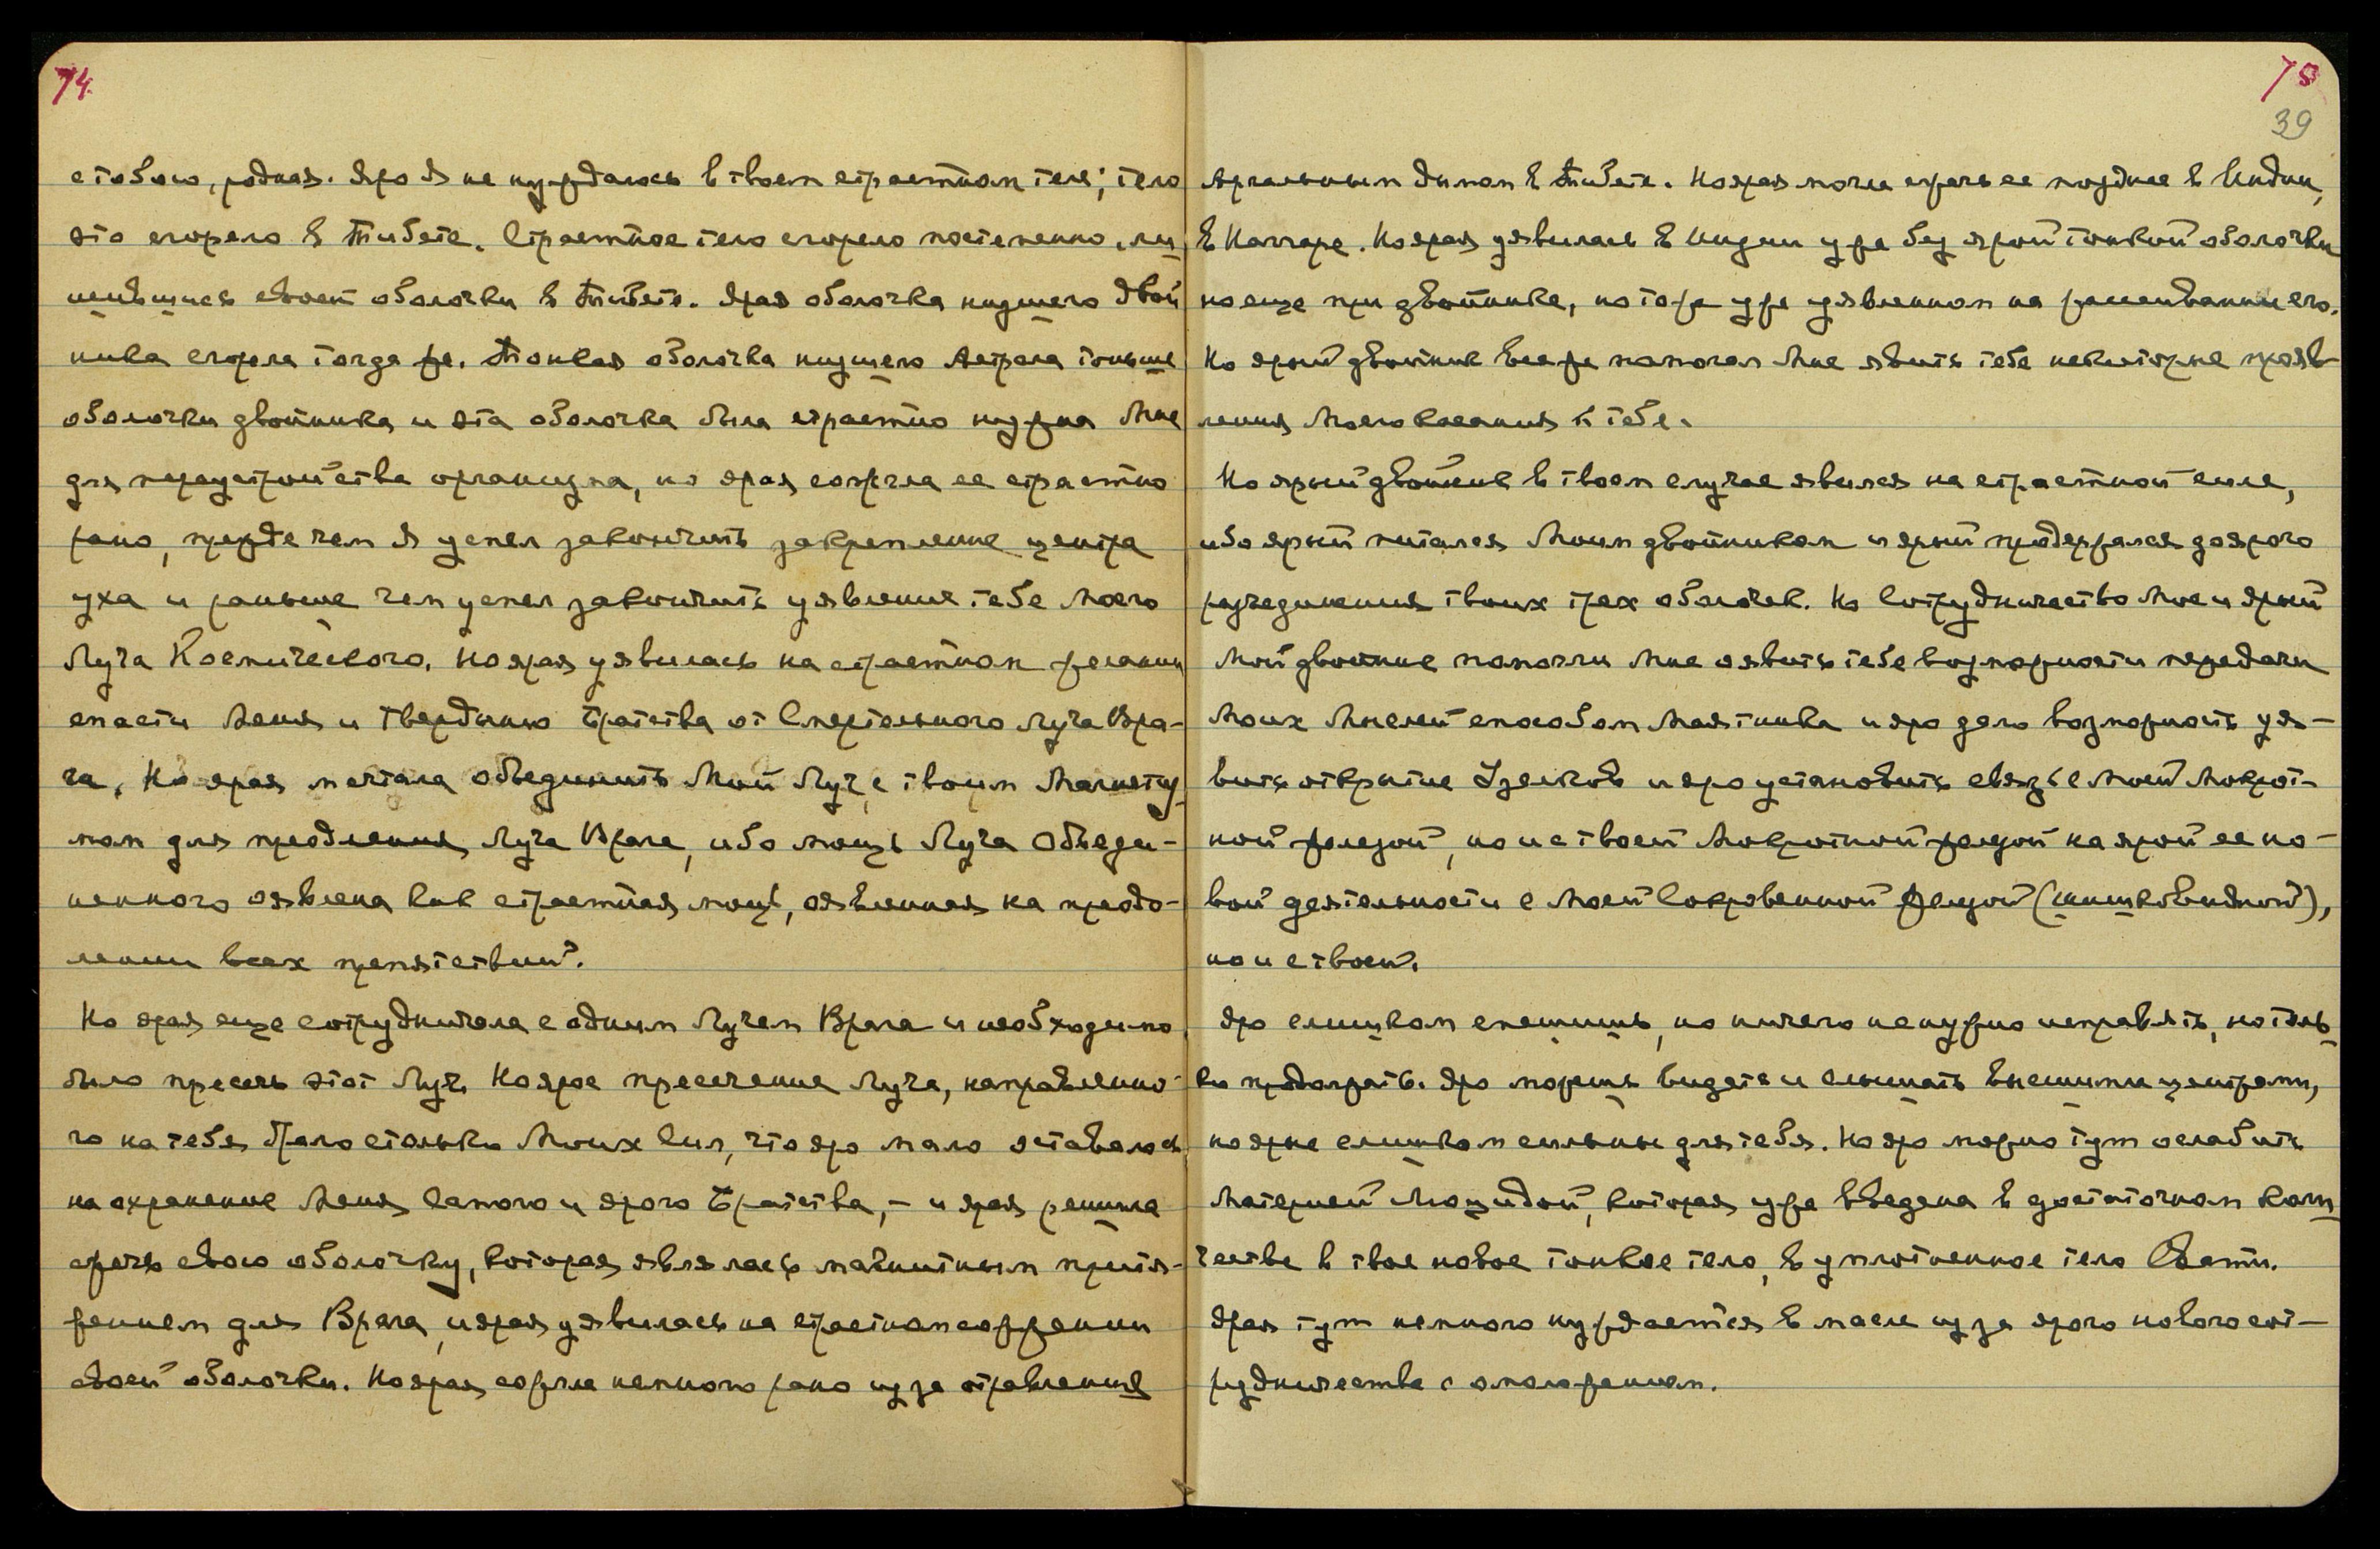 74
с тобою, родная. Яро Я не нуждаюсь в твоем страстном теле; тело
это сгорело в Тибете. Страстное тело сгорело постепенно, ли
шившись своей оболочки в Тибете. Ярая оболочка низшего двой
ника сгорела тогда же. Тонкая оболочка низшего Астрала тоньше
оболочки двойника и эта оболочка была страстно нужна Мне
для переустройства организма, но ярая сожгла ее страстно
рано, прежде чем Я успел закончить закрепление центра
уха и раньше чем успел закончить уявление тебе Моего
Луча Космического. Но ярая уявилась на страстном желании
спасти Меня и Твердыню Братства от Смертельного Луча Вра-
га. Но ярая мечтала объединить Мой Луч с твоим Магнетиз
мом для преодления Луча Врага, ибо мощь Луча Объеди-
ненного оявлена как страстная мощь, оявленная на преодо-
лении всех препятствий.
Но ярая еще сотрудничала с одним Лучем Врага и необходимо
было пресечь этот Луч. Но ярое пресечение Луча, направленно-
го на тебя брало столько Моих Сил, что яро мало оставалось
на охранение Меня Самого и ярого Братства, - и ярая решила
сжечь свою оболочку, которая являлась магнитным притя-
жением для Врага, и ярая уявилась на страстном сожжении
своей оболочки. Но ярая сожгла немного рано из за отравления
75
39
Аргальным дымом в Тибете. Но ярая могла сжечь ее позднее в Индии,
в Наггаре. Но ярая уявилась в Индии уже без ярой тонкой оболочки
но еще при двойнике, но тоже уже уявленном на рассеивании его.
Но ярый двойник все же помогал Мне явить тебе некоторые прояв-
ления Моего касания к тебе.
Но ярый двойник в твоем случае явился на страстной силе,
ибо ярый питался Моим двойником и ярый продержался до ярого
разъединения твоих трех оболочек. Но Сотрудничество Мое и ярый
Мой двойник помогли Мне оявить тебе возможности передачи
Моих Мыслей способом Маятника и яро дало возможность уя-
вить открытие Узелков и яро установить связь с Моей Мокрот-
ной железой, но и с твоей Мокротной железой на ярой ее но-
вой деятельности с Моей Сокровенной Железой (шишковидной),
но и с твоей.
Яро слишком спешишь, но ничего не нужно исправлять, но толь
ко продолжать. Яро можешь видеть и слышать высшими центрами,
но ярые слишком сильны для тебя. Но яро можно тут ослабить
Материей Люцидой, которая уже введена в достаточном коли
честве в твое новое тонкое тело, в уплотненное тело Свати.
Ярая тут немного нуждается в масле из за ярого нового сот-
рудничества с омоложением.